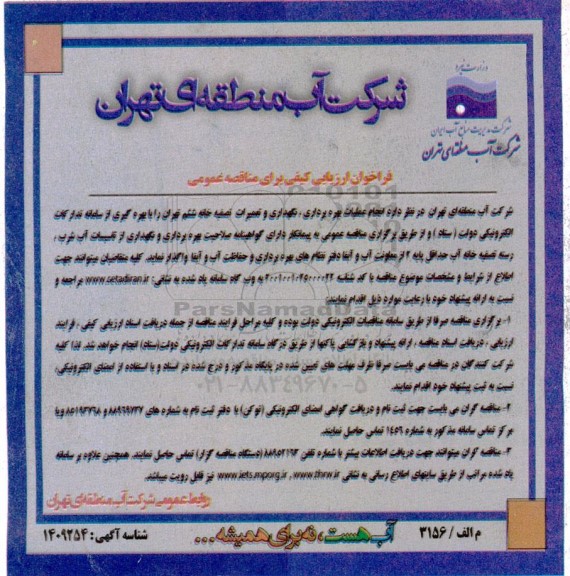 شرکت آب منطقه‌ای تهران
وزارت نیرو
شرکت مدیریت منابع آب ایران
شرکت آب منطقه‌ای تهران
فراخوان ارزیابی کیفی برای مناقصه عمومی
شرکت آب منطقه‌ای تهران در نظر دارد انجام عملیات بهره برداری، نگهداری و تعمیرات تصفیه خانه ششم تهران را با بهره گیری از سامانه تدارکات
الکترونیکی دولت (ستاد) و از طریق برگزاری مناقصه عمومی به پیمانکار دارای گواهینامه صلاحیت بهره برداری و نگهداری از تاسیسات آب شرب،
رسته تصفیه خانه آب حداقل پایه ۲ از معاونت آب و آبفا دفتر نظام های بهره برداری و حفاظت آب و آبفا واگذار نماید. کلیه متقاضیان میتوانند جهت
اطلاع از شرایط و مشخصات موضوع مناقصه با کد شناسه به وب گاه سامانه یاد شده به نشانی: www.setadiran.ir مراجعه و
نسبت به ارائه پیشنهاد خود با رعایت موارد ذیل اقدام نمایند:
۱- برگزاری مناقصه صرفا از طریق سامانه مناقصات الکترونیکی دولت بوده و کلیه مراحل فرایند مناقصه از جمله دریافت اسناد ارزیابی کیفی، فرایند
ارزیابی، دریافت اسناد مناقصه، ارائه پیشنهاد و بازگشایی پاکتها از طریق درگاه سامانه تدارکات الکترونیکی دولت(ستاد) انجام خواهد شد. لذا کلیه
شرکت کنندگان در مناقصه می بایست صرفا ظرف مهلت های تعیین شده در پایگاه مذکور و درج شده در اسناد و با استفاده از امضای الکترونیکی،
نسبت به ثبت پیشنهاد خود اقدام نمایند.
۲- مناقصه گران می بایست جهت ثبت نام و دریافت گواهی امضای الکترونیکی (توکن) با دفتر ثبت نام به شماره های ۸۸۹۶۹۷۳۷ و ۸۵۱۹۳۷۶۸ و یا
مرکز تماس سامانه مذکور به شماره ۱۴۵۶ تماس حاصل نمایند.
۳- مناقصه گران میتوانند جهت دریافت اطلاعات بیشتر با شماره تلفن ۸۸۹۵۲۱۹۳ (دستگاه مناقصه گزار) تماس حاصل نمایند. همچنین علاوه بر سامانه
یاد شده مراتب از طریق سایتهای اطلاع رسانی به نشانی www.thrw.ir ، www.iets.mporg.ir نیز قابل رویت میباشد.
روابط عمومی شرکت آب منطقه‌ای تهران
م الف / ۳۱۵۶
آب هست، نه برای همیشه...
شناسه آگهی: ۱۴۰۹۲۵۴
ParsNamadData
۰۲۱-۸۸۳۴۹۶۷۰-۵